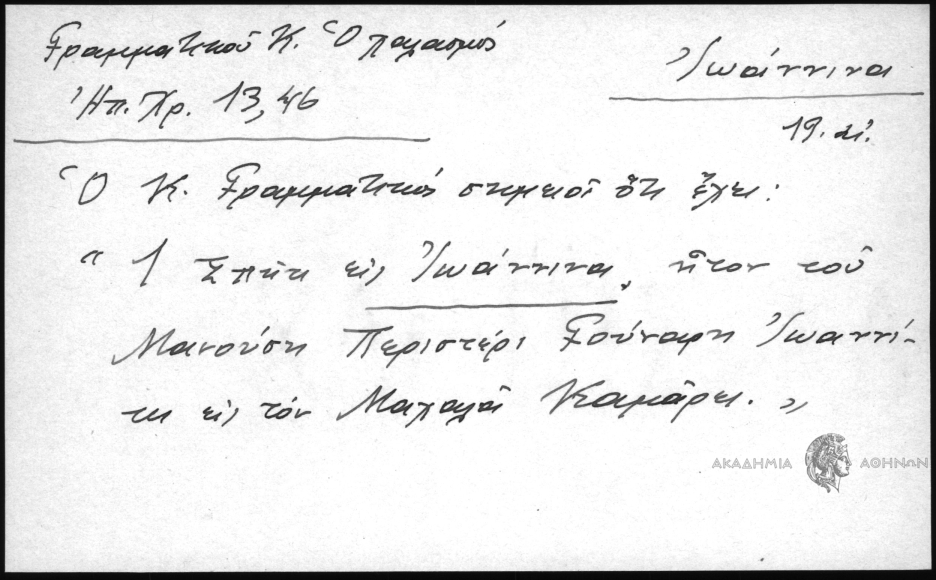 Γραμματικοῦ Κ. Ὁ
Ἠπ. Χρ. 13, 46
Ἰωάννινα
19. αἰ.
Ὁ Κ. Γραμματικός σημειοῖ ὅτι ἔχει:
" 1 Σπῆτι εἰς Ἰωάννινα, ἦτον τοῦ
Μανούση Περιστέρι Γούναρη Ἰωαννί-
τη εἰς τόν Μαχαλᾶ Καμάρει. "
ΑΚΑΔΗΜΙΑ ΑΘΗΝΩΝ